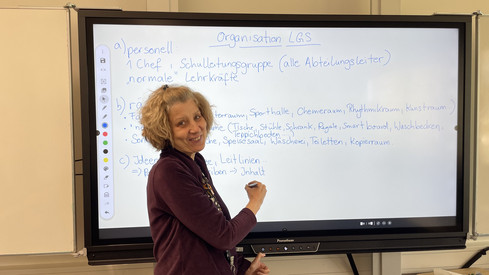 Organisation LGS
a) personell
1 Chef, Schulleitungsgruppe (alle Abteilungsleiter)
"normale" Lehrkräfte
b)
Sporthalle, Chemieraum, Rhythmikraum, Kunstraum)
(Tische, Stühle, Schrank, Regale, Smartboard, Waschbecken,
Teppichboden
Speisesaal, Wäscherei, Toiletten, Kopierraum
c) Ideen Leitlinien
=> → Inhalt